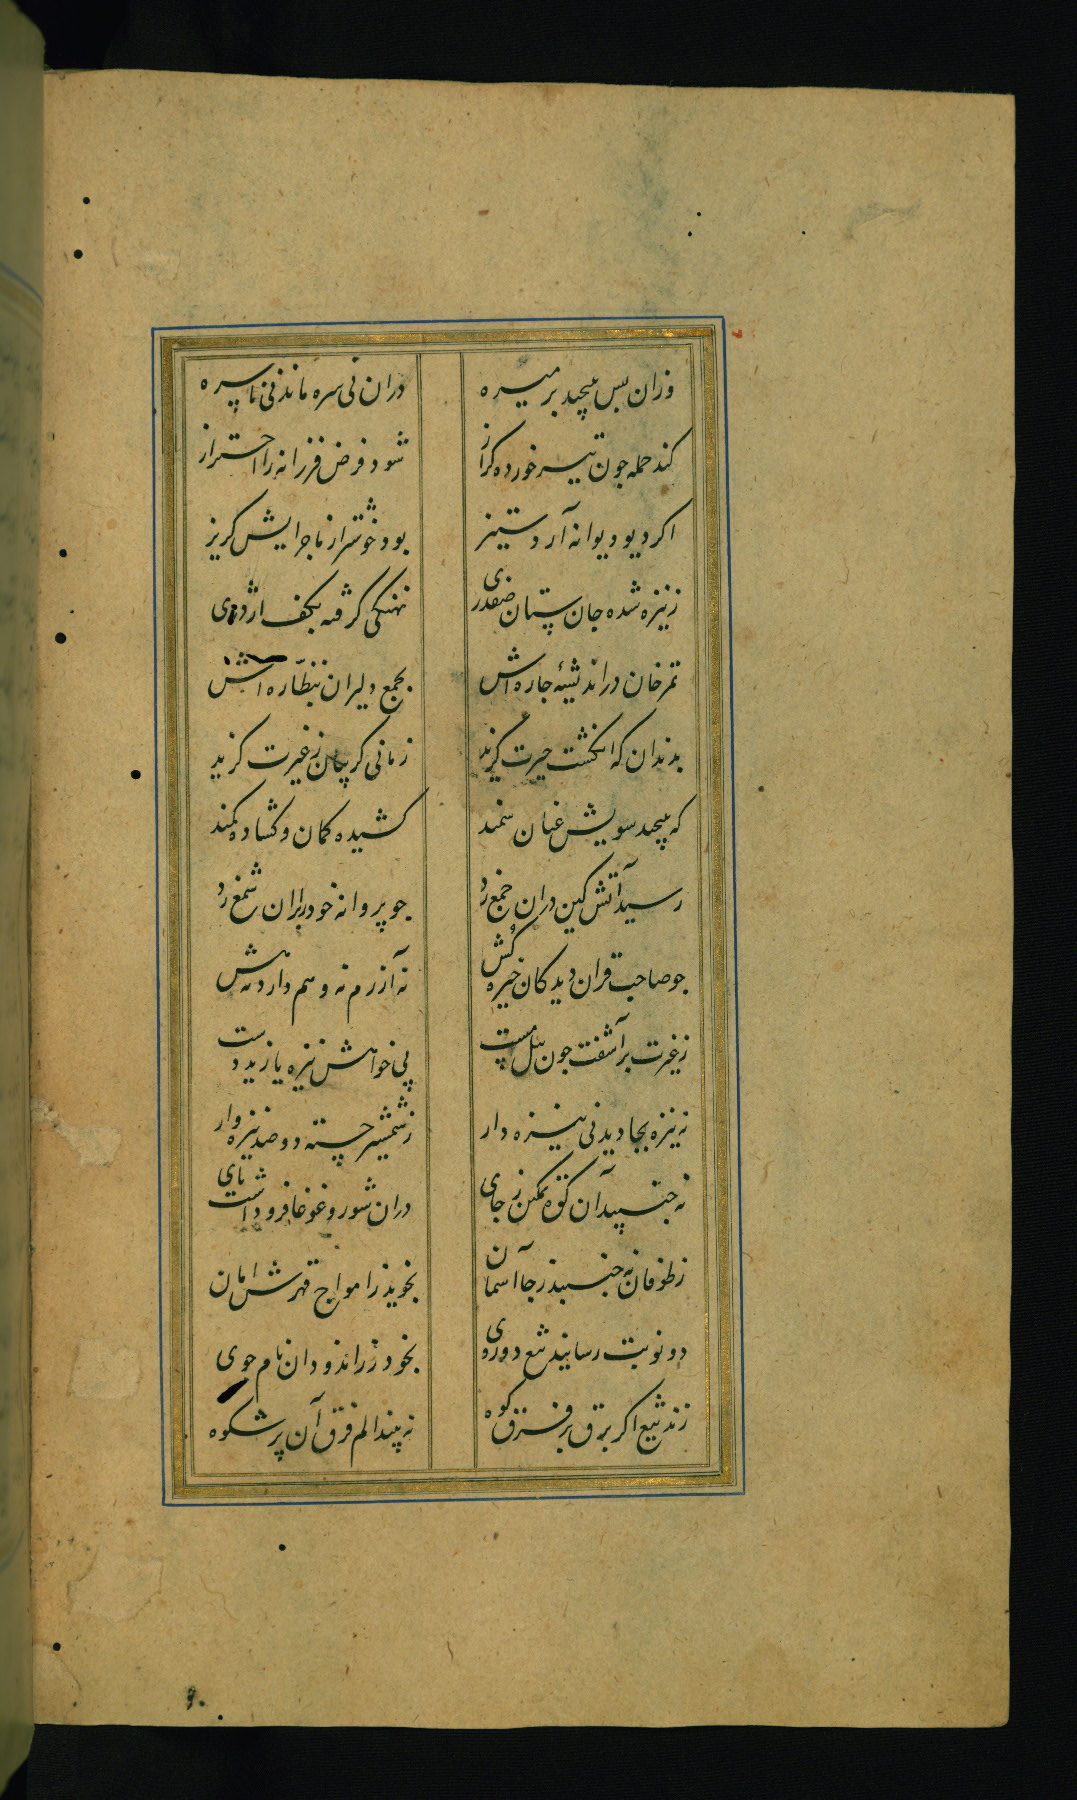 وزان پس بپیچید بر میسره دران نی سره ماند نی ناسره
کند حمله جون تیر خورده کراز شود فرض فرزانه را احتراز
اکر دیو دیوانه آرد ستیز بود خوشتر از ماجرایش کریز
ز نیزه شده جان ستان صفدری نهنکی کرفته بکف اژدری
تمرخان در اندیشهٔ چاره‌اش بجمع دلیران بنظاره‌اش
بدندان که انکشت حیرت کزید زمانی کریبان ز غیرت کزید
که پیچد سویش عنان سمند کشیده کمان و کشاده کمند
رسید آتش کین دران جمع زد جو پروانه خود را بران شمع زد
جو صاحب قران دید کان خیره کش نه آزرم نه وهم دارد نه هش
ز غیرت برآشفت جون پیل مست پی خواهش نیزه یازید دست
نه نیزه بجا دید نی نیزه دار ز شمشیر جسته دو صد نیزه وار
نه جنبید آن کوه تمکین ز جای دران شور و غوغا فرو داشت پای
ز طوفان نه جنبد ز جا آسمان بجوید ز امواج قهرش امان
دو نوبت رسانید تیغ دوروی بخود زراندود آن نام جوی
زند تیغ اکر برق بر فرق کوه نه بیند الم فرق آن پر شکوه